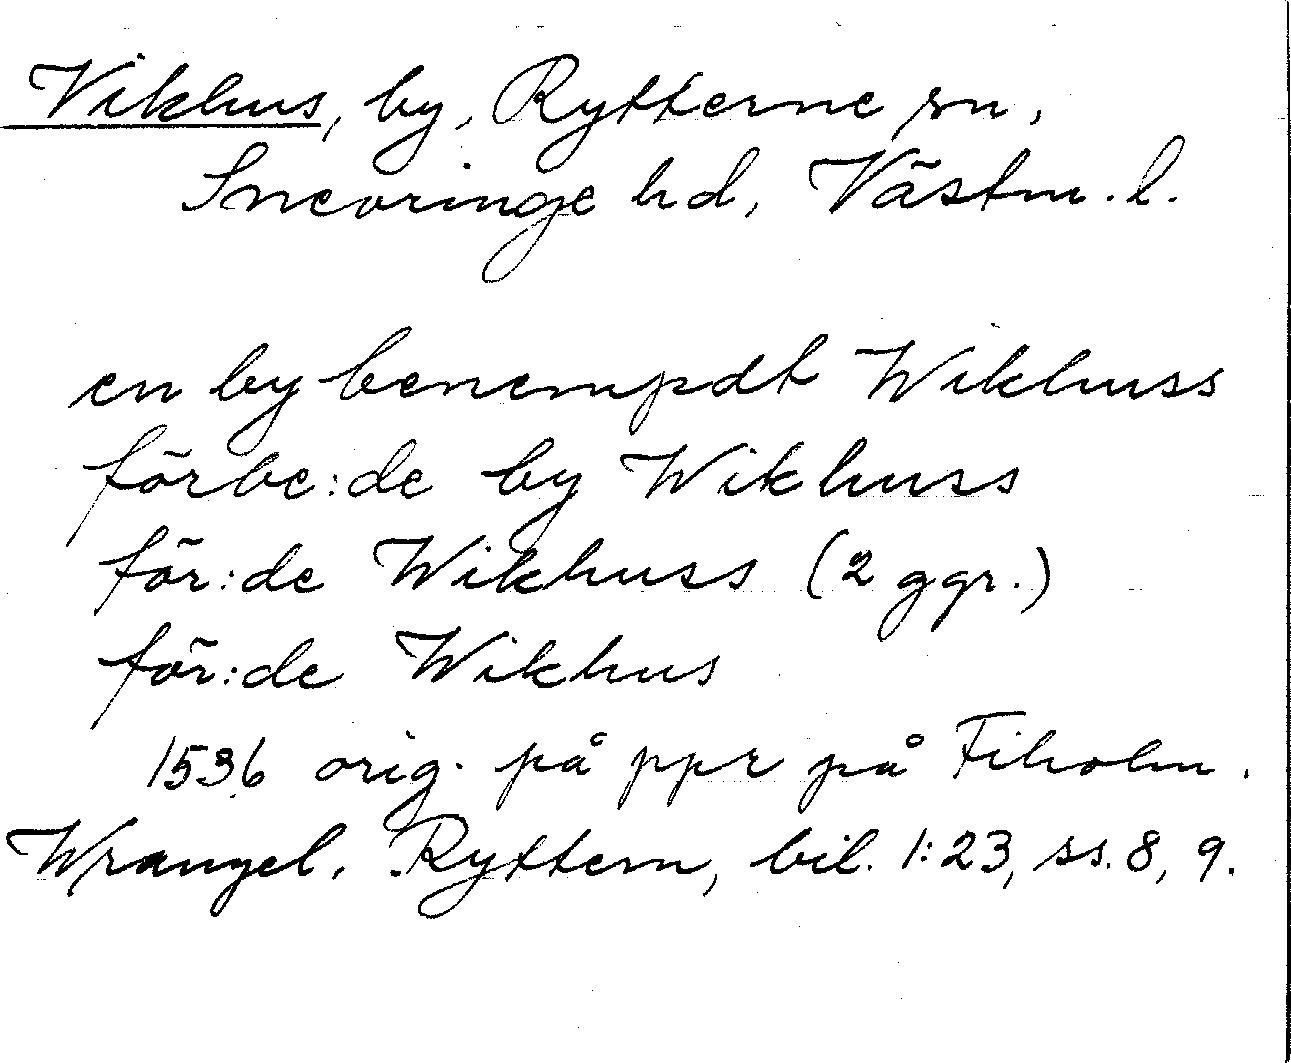 Vikhus, by, Rytterne sn,
Snevringe hd, Västm. l.
en by benempdt Wikhuss
förbe:de by Wikhuss
för:de Wikhuss (2 ggr.)
för:de Wikhus
1536 orig. på ppr på Fiholm.
Wrangel. Ryttern, bil. 1:23, ss. 8, 9.